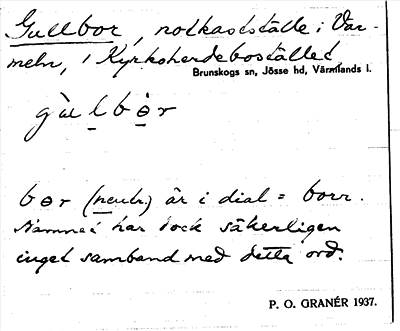 Gullbor, notkastställe i Vär-
meln, i Kyrkoherdebostället,
Brunskogs sn, Jösse hd, Värmlands l.
gùlbɵr
bɵr (neutr.) är i dial = borr.
Namnet har dock säkerligen
inget samband med detta ord.
P. O. GRANÉR 1937.